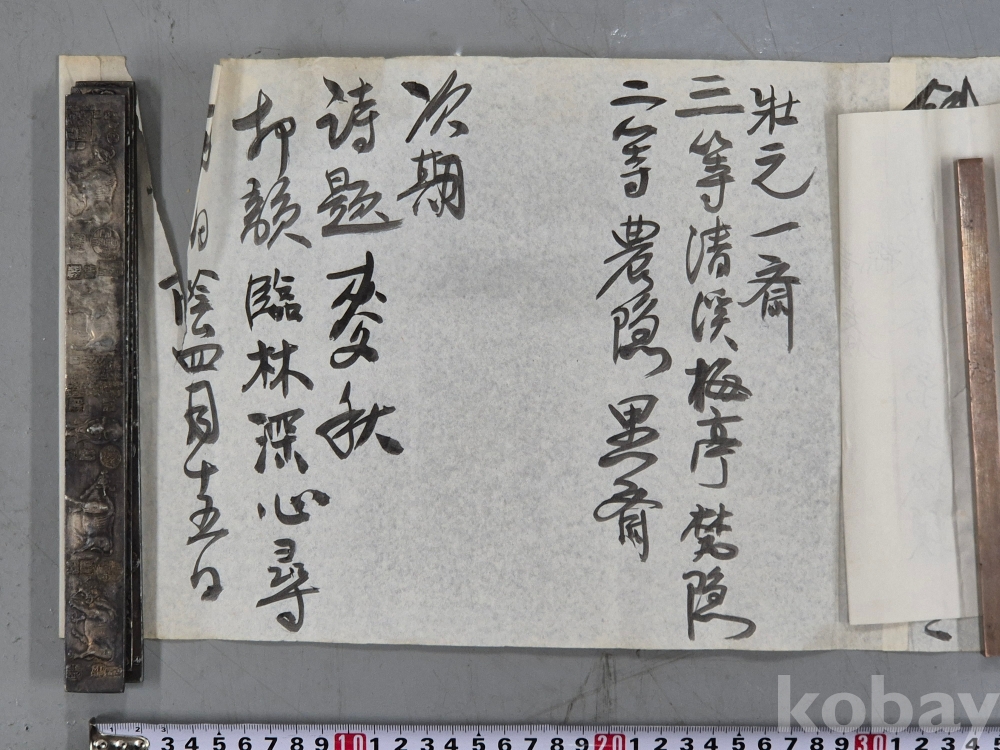 壯元一齋
三等清溪梅亭楚隱
二等農隱里齋
次期
詩題麥秋
押韻臨林深心尋
陰四月十五日
kobay
3 4 5 6 7 8 9 10 1 2 3 4 5 6 7 8 9 20 1 2 3 4 5 6 7 8 9 30 1 2 3 4